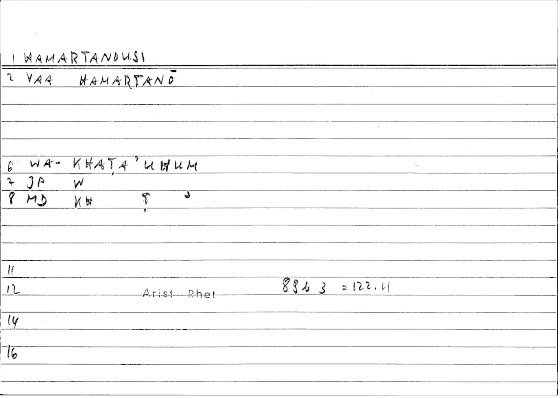 1 HAMARTANOUSI
2 VAA HAMARTANŌ
6 WA- KHAṬA'UHUM
7 JP W
8 MD KH Ṭ '
11
12 Arist Rhet 89b 3 =122.11
14
16